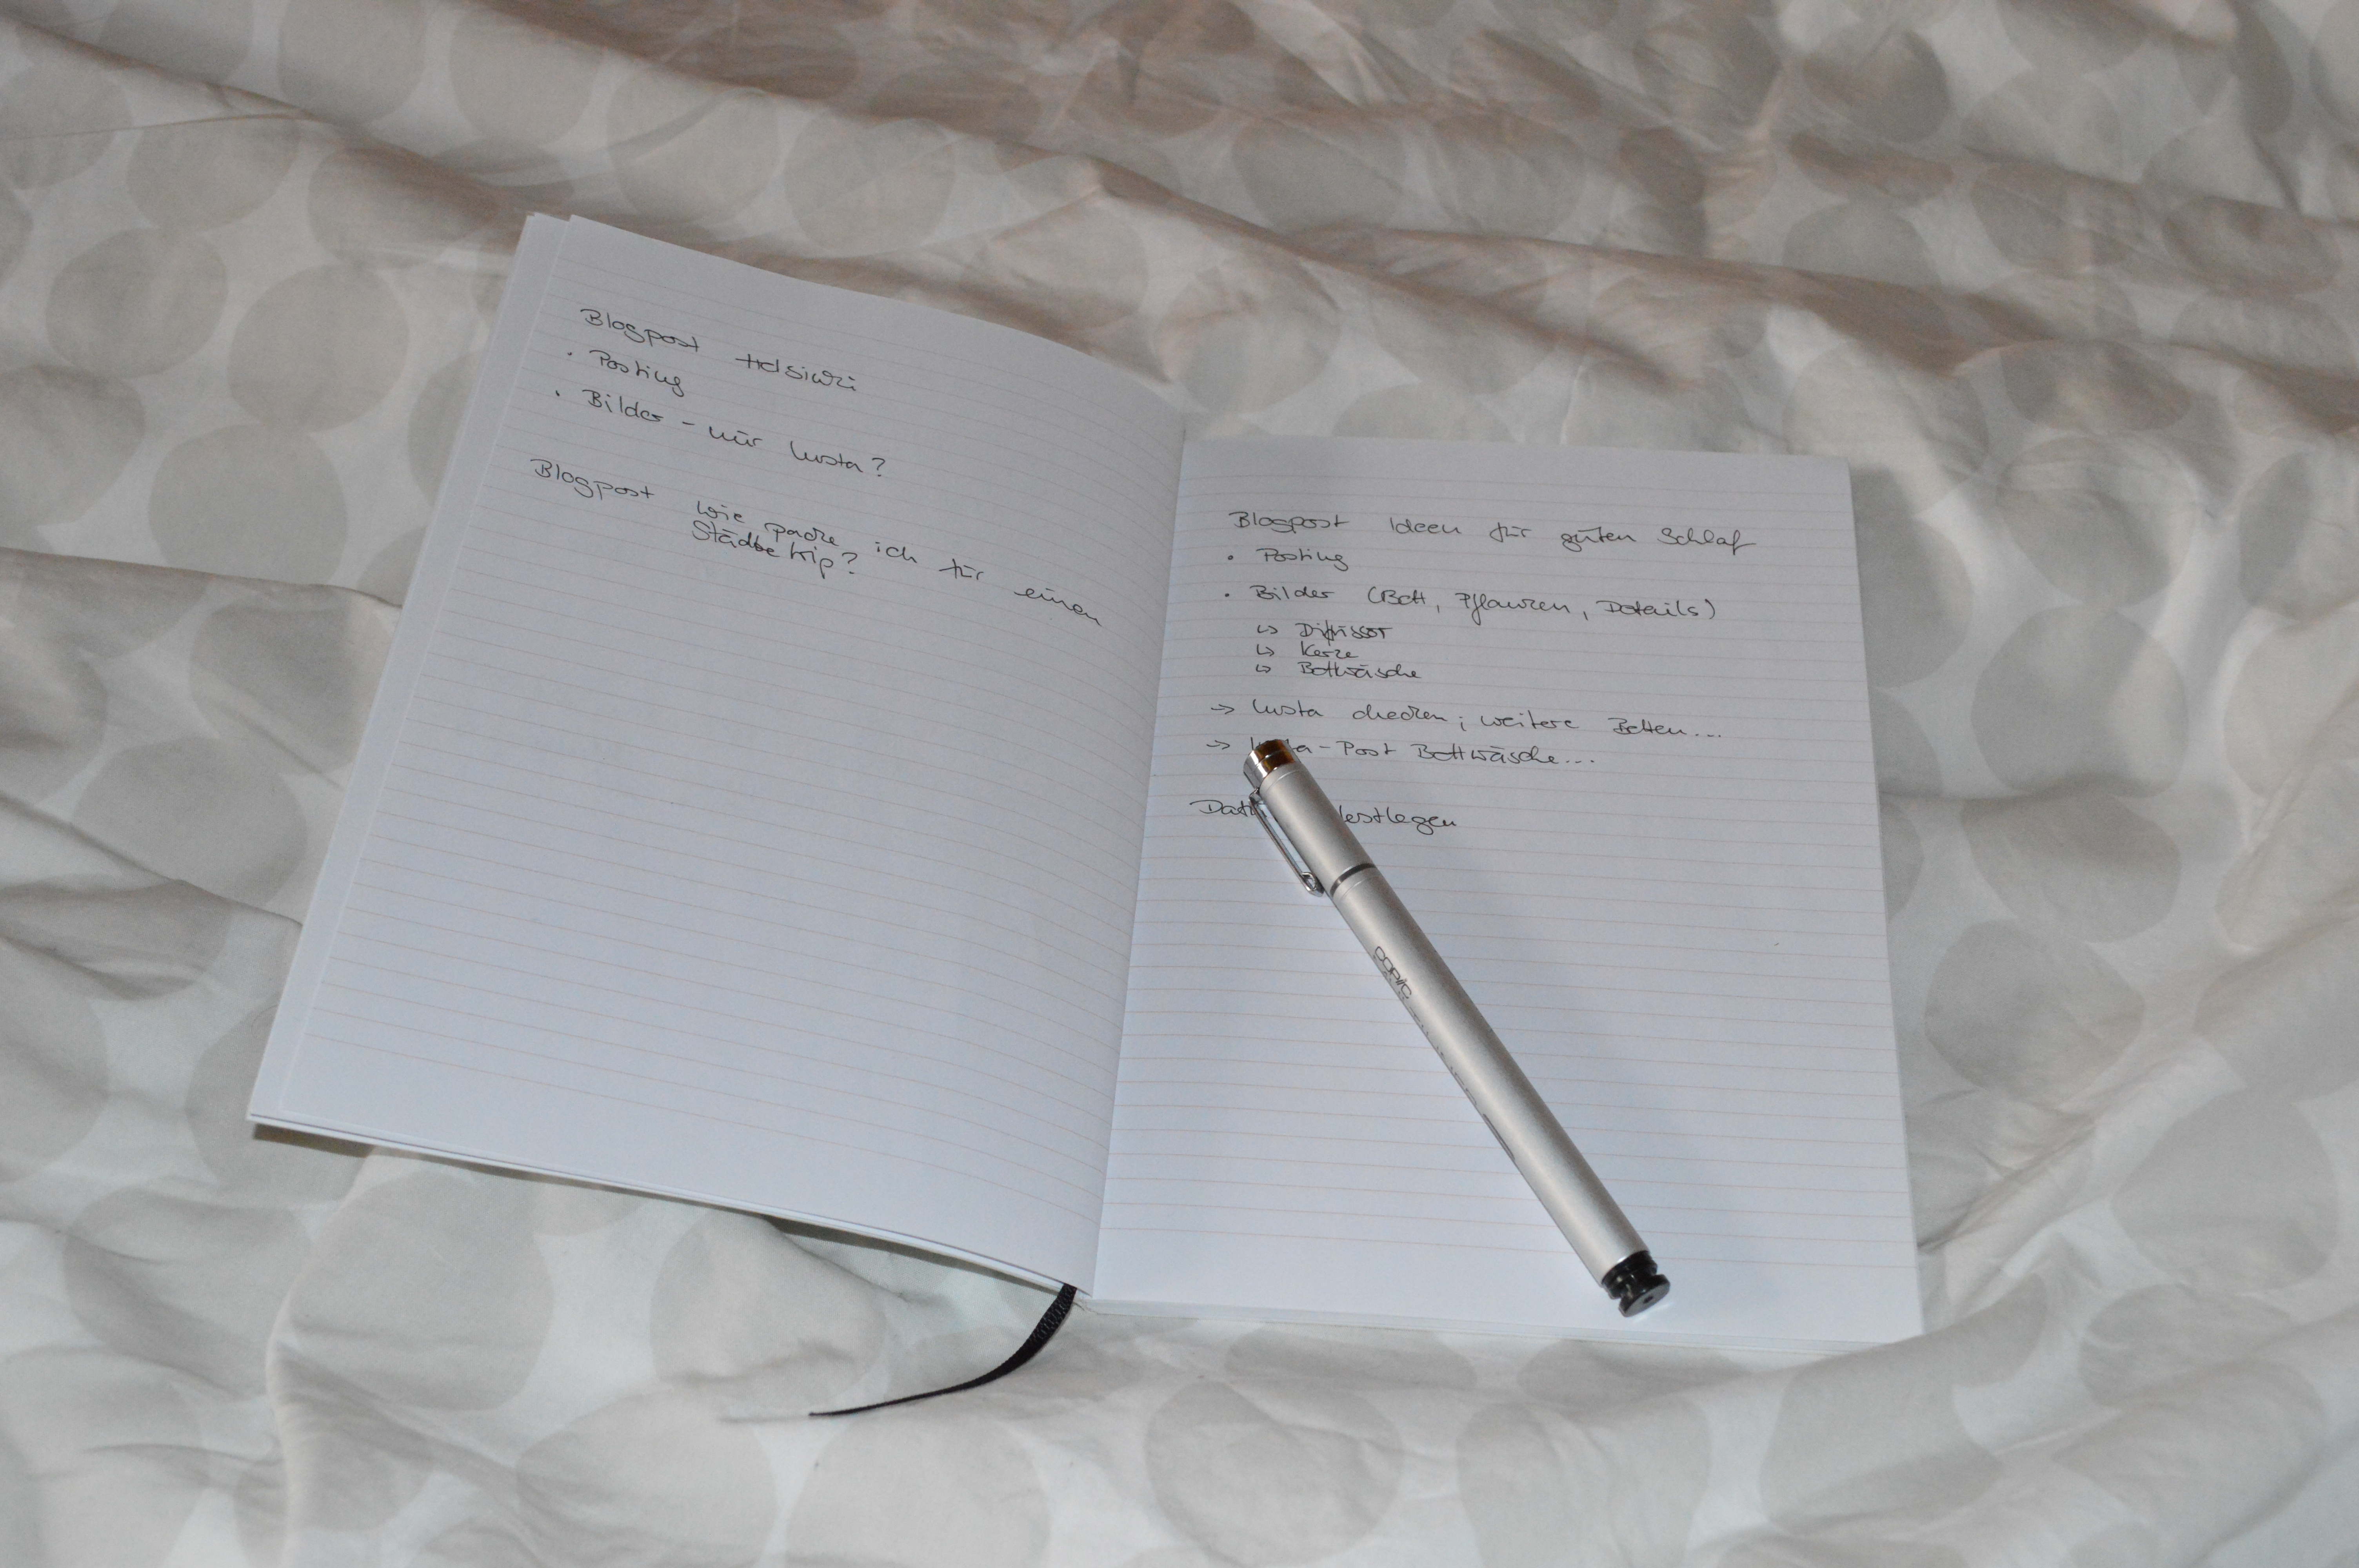 Blogpost Helsinki
• Posting
• Bilder - nur Insta?
Blogpost wie packe ich für einen
Städtetrip?
Blogpost Ideen für guten Schlaf
• Posting
• Bilder (Bett, Pflanzen, Details)
↳ Diffusor
↳ Kerze
↳ Bettwäsche
→ Insta checken; weitere Betten...
→ -Post Bettwäsche...
festlegen
copic